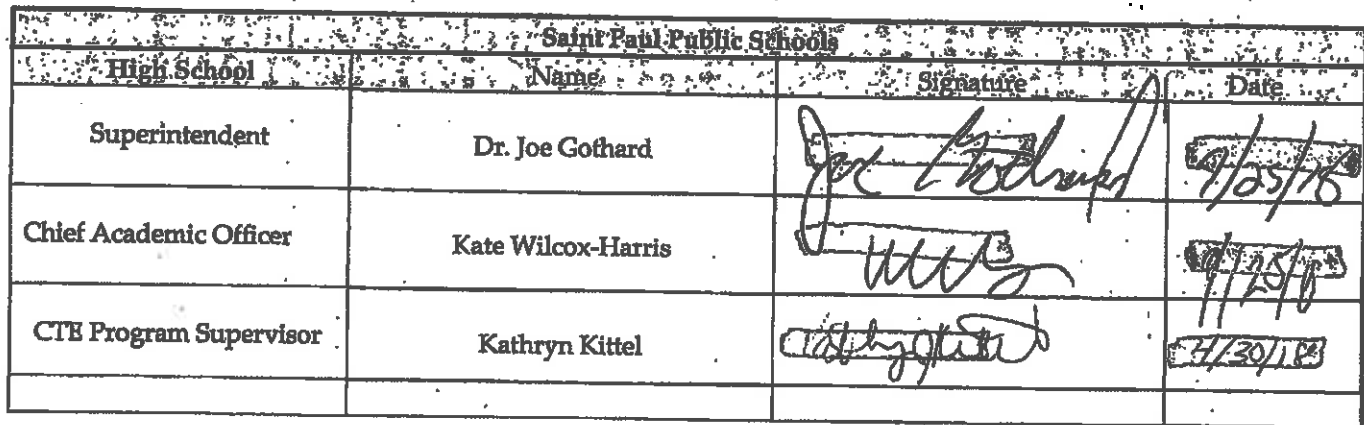 Saint Paul Public Schools
High School Name Signature Date
Superintendent Dr. Joe Gothard Joe Gothard /25/18
Chief Academic Officer Kate Wilcox-Harris
CTE Program Supervisor Kathryn Kittel Kathy Kittel 4/30/18